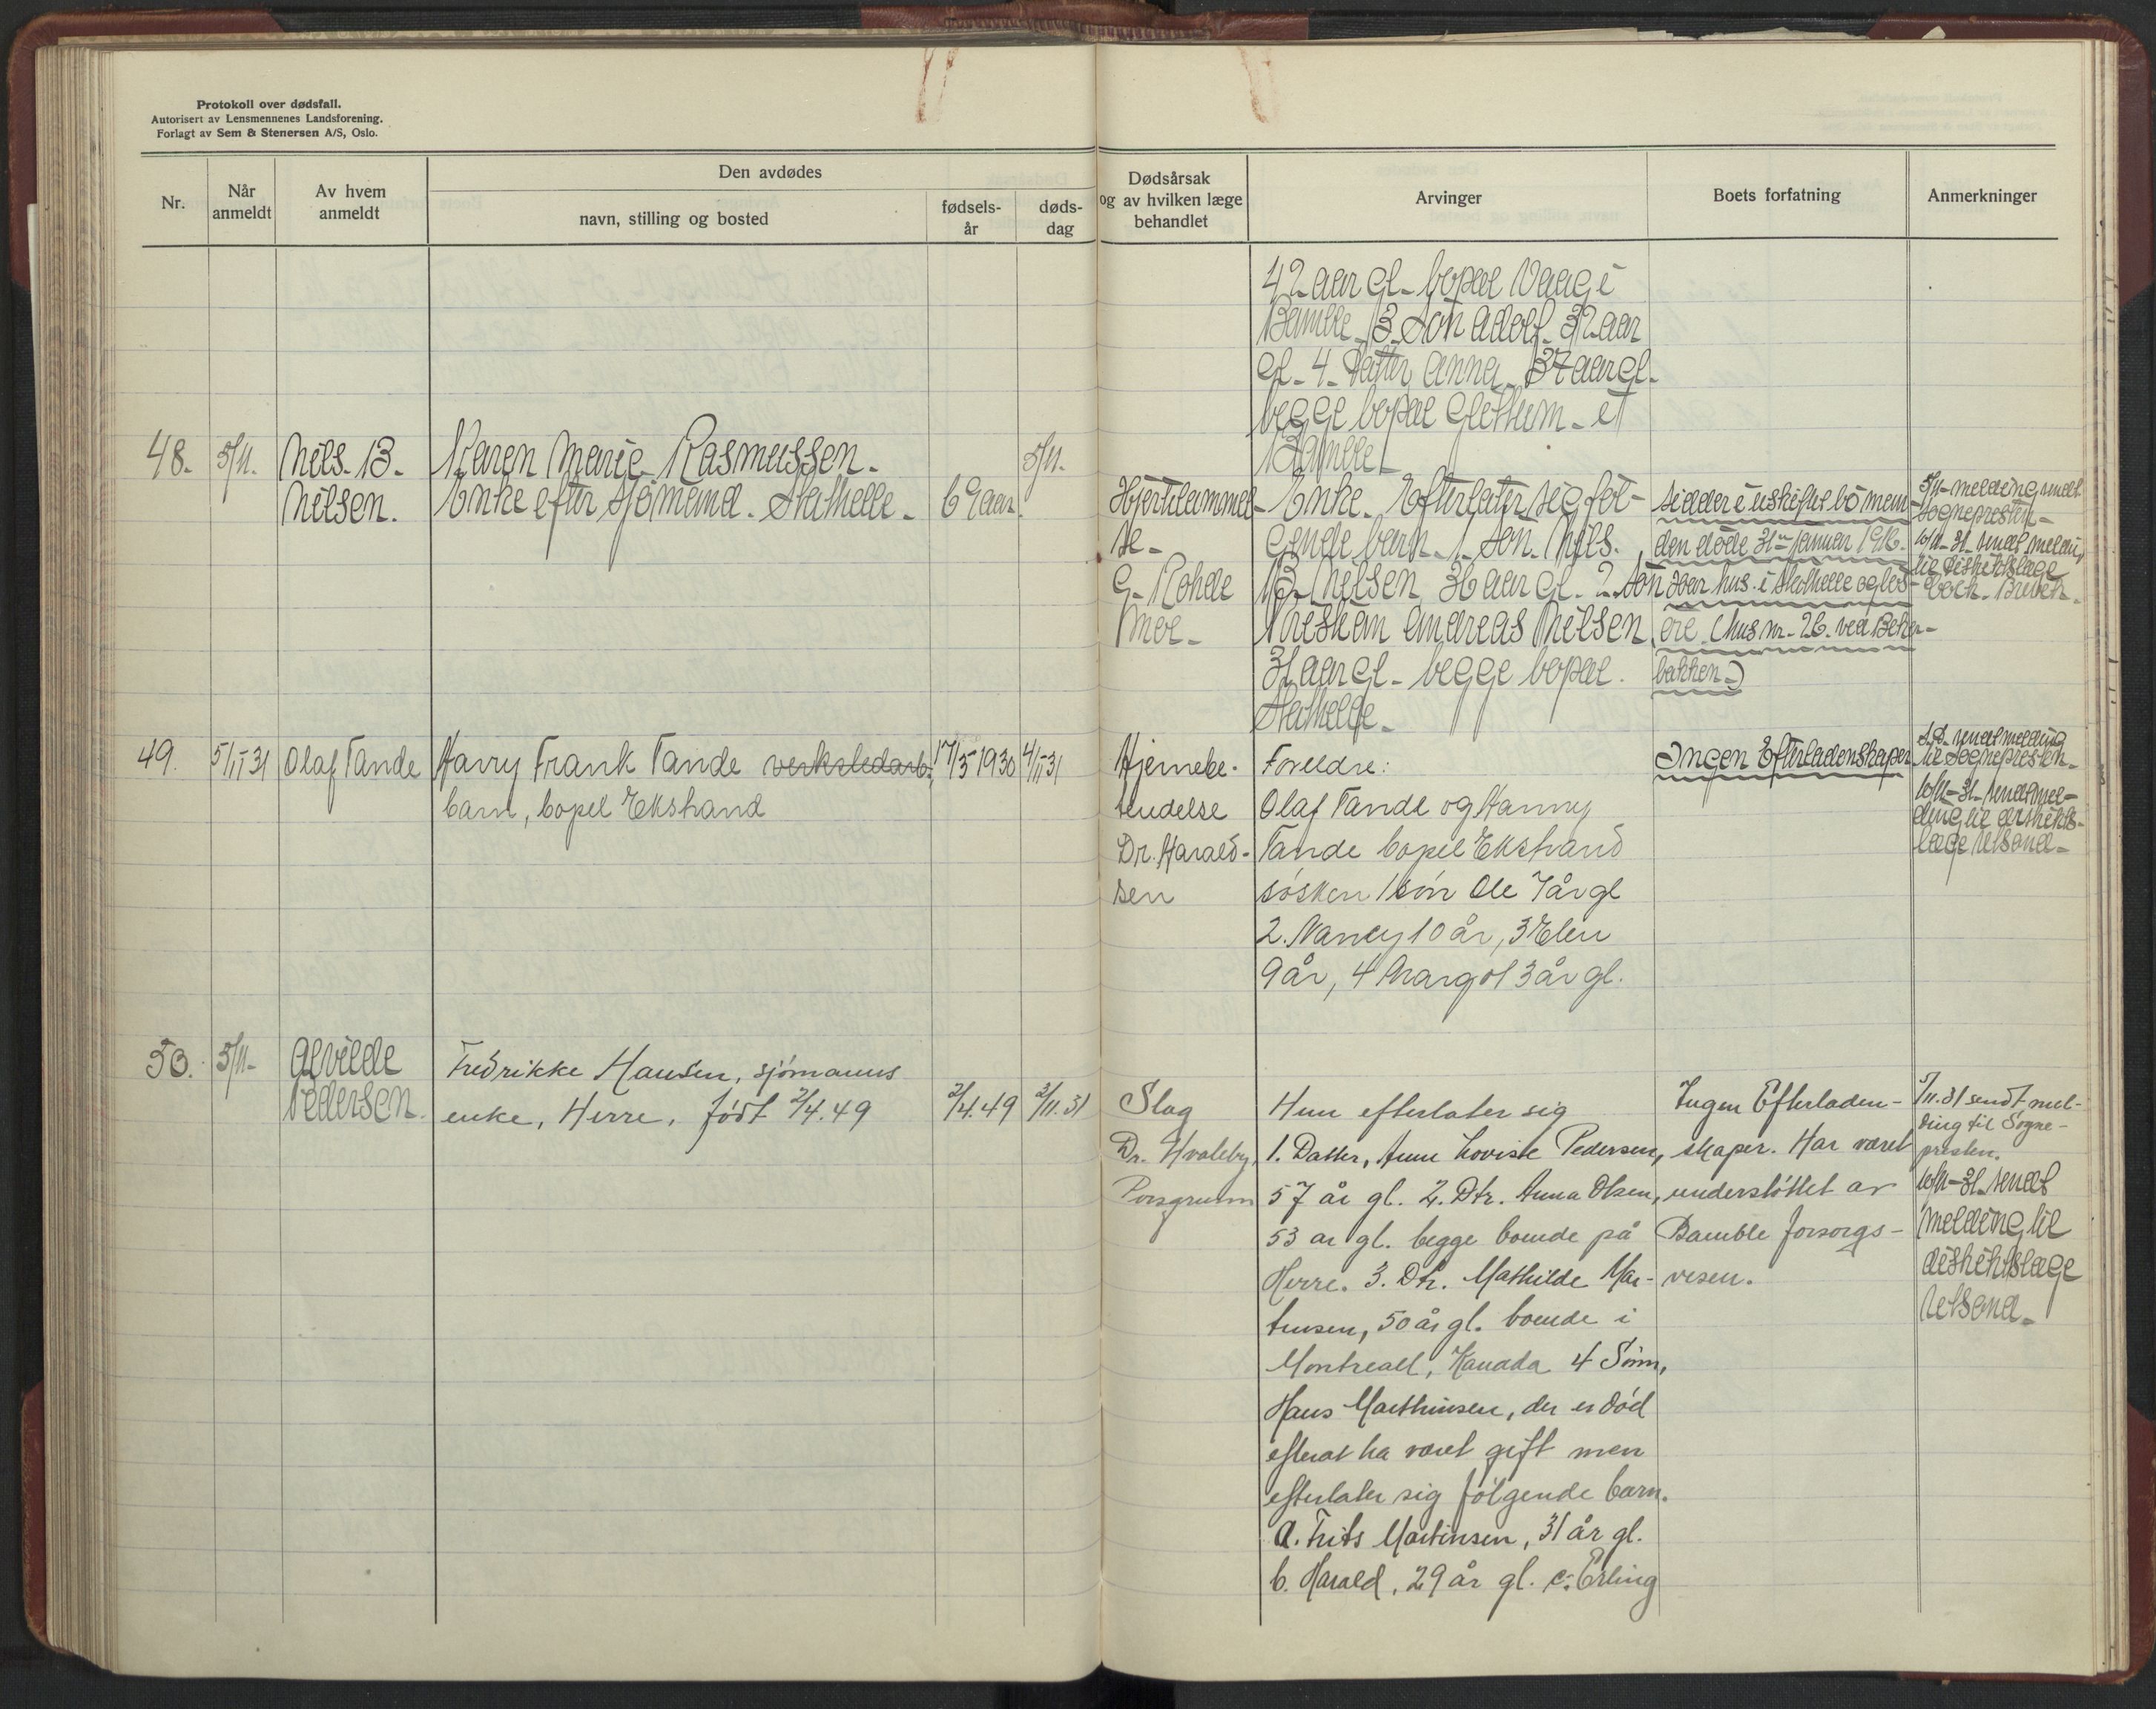 Protokoll over dødsfall.
Autorisert av Lensmennenes Landsforening.
Forlagt av Sem & Stenersen A/S, Oslo.
Nr.
Når anmeldt
Av hvem anmeldt
Den avdødes
navn, stilling og bosted
fødsels-år
døds-dag
Dødsårsak og av hvilken læge behandlet
Arvinger
Boets forfatning
Anmerkninger
42 aar gl- bopæl Vaag i
Bamble. 3. Søn Adolf 32 aar
gl- 4- Datter Anna 37 aar gl-
begge bopæl
Bamble
48.
5/11.
Nils. B.
Nilsen.
Karen Marie Rasmussen.
Enke efter Sjømand. Stathelle.
69 aar.
5/11.
Hjertelammel-
se-
G- Rohde
Moe-
Enke. Efterlater sig føl-
gende barn. 1. Søn. Nils.
B. Nilsen 36 aar gl. 2. Søn
Kristian Andreas Nilsen
31 aar gl- begge bopæl.
Stathelle-
sidder i uskiftet bo mem
den døde 31 januar 1916.
Har hus i Stathelle og løs-
øre (hus nr. 26. ved Beker-
bakken-)
5/11- melding sendt
sognepresten-
10/11-31. sendt meldin,
til distriktslæge
Brevik.
49.
5/11 31
Olaf Tande
Harry Frank Tande verkstedarb.
barn, bopel Ekstrand
17/5 1930
4/11 31
Hjernebe-
tendelse
Dr. Harald-
sen
Foreldre:
Olaf Tande og Hanny
Tande bopel Ekstrand
søsken 1 søn Ole 7 år gl
2. Nancy 10 år, 3 Elen
9 år, 4 Margot 3 år gl.
Ingen Efterladenskaper
S.D. sendt melding
til Sognepresten-
10/11-31- sendt mel-
ding til distrikts-
læge Ursand-
50.
5/11-
Alvilde
Pedersen.
Fredrikke Hansen, sjømanns
enke, Herre, født 2/4.49
2/4.49
3/11.31
Slag
Dr. Hvaleby,
Porsgrunn
Hun efterlater sig
1. Datter, Anne Lovise Pedersen,
57 år gl. 2. Dtr. Anna Olsen,
53 ar gl. begge boende på
Herre. 3. Dtr. Mathilde Mar-
tinsen, 50 år gl. boende i
Montreall, Kanada 4 Sønn,
Hans Marthinsen, der er død
efterat ha været gift men
efterlater sig følgende barn.
a. Frits Martinsen, 31 år gl.
b. Harald, 29 år gl. c. Erling
Ingen Efterladen-
skaper. Har været
understøttet av
Bamble forsorgs-
vesen.
5/11.31 sendt mel-
ding til Sogne-
presten.
10/11-31. sendt
melding til
distriktslæge
Ursand-